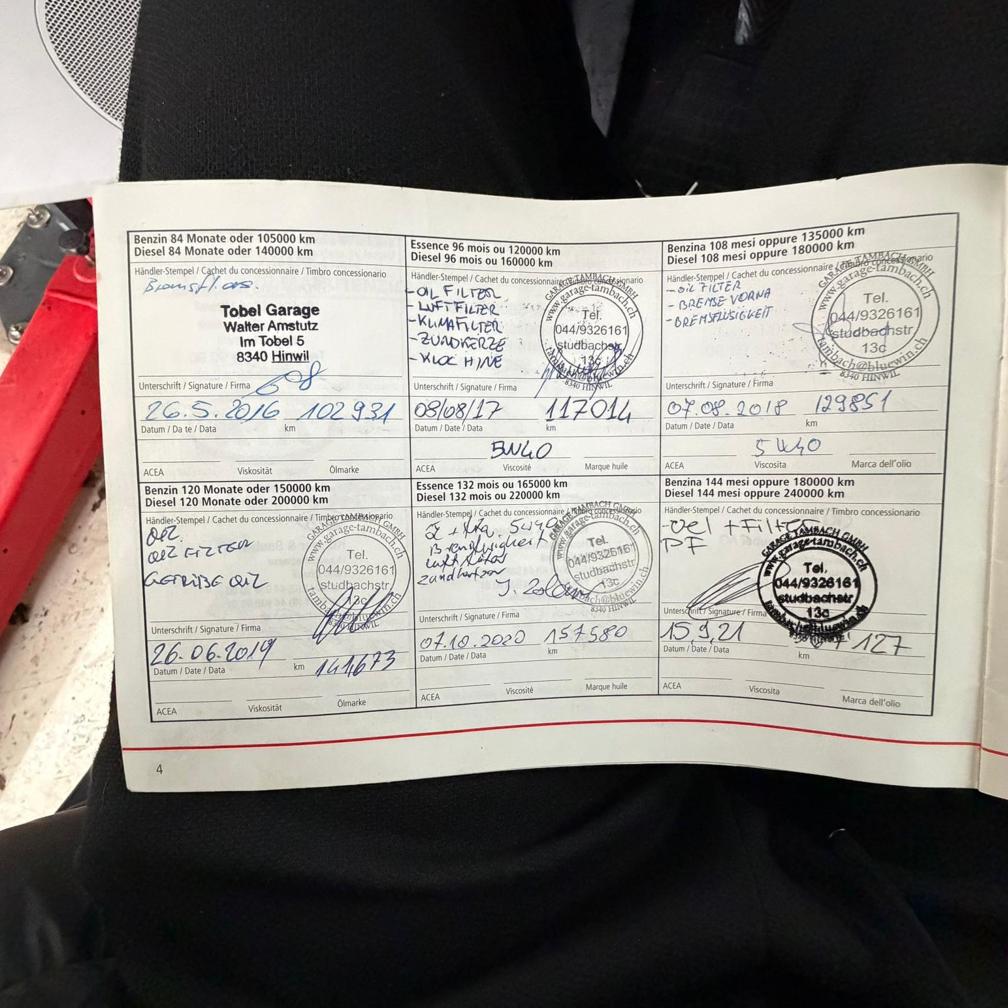 Benzin 84 Monate oder 105000 km
Diesel 84 Monate oder 140000 km
Händler-Stempel / Cachet du concessionnaire / Timbro concessionario
Tobel Garage
Walter Amstutz
Im Tobel 5
8340 Hinwil
Unterschrift / Signature / Firma
26.5.2016 102931
Datum / Da te / Data km
ACEA Viskosität Ölmarke
Essence 96 mois ou 120000 km
Diesel 96 mois ou 160000 km
Händler-Stempel / Cachet du concessionnaire / Timbro concessionario
-OIL FILTER
-LUFTFILTER
-KLIMAFILTER
-ZUNDKERZE
GARAGE TAMBACH GMBH
www.garage-tambach.ch
Tel.
044/9326161
studbachstr
13c
8340 HINWIL
Unterschrift / Signature / Firma
08/08/17 117014
Datum / Date / Data km
5W40
ACEA Viscosité Marque huile
Benzina 108 mesi oppure 135000 km
Diesel 108 mesi oppure 180000 km
Händler-Stempel / Cachet du concessionnaire / Timbro concessionario
-OIL FILTER
-BREMSE VORNA
-BREMSFLÜSIGKEIT
GARAGE TAMBACH GMBH
www.garage-tambach.ch
Tel.
044/9326161
studbachstr
13c
tambach@bluewin.ch
8340 HINWIL
Unterschrift / Signature / Firma
07.08.2018 129851
Datum / Date / Data km
5W40
ACEA Viscosita Marca dell'olio
Benzin 120 Monate oder 150000 km
Diesel 120 Monate oder 200000 km
Händler-Stempel / Cachet du concessionnaire / Timbro concessionario
GARAGE TAMBACH GMBH
www.garage-tambach.ch
Tel.
044/9326161
studbachstr
13c
tambach@bluewin.ch
8340 HINWIL
Unterschrift / Signature / Firma
26.06.2019 141673
Datum / Date / Data km
ACEA Viskosität Ölmarke
Essence 132 mois ou 165000 km
Diesel 132 mois ou 220000 km
Händler-Stempel / Cachet du concessionnaire / Timbro concessionario
5W40
GARAGE TAMBACH GMBH
www.garage-tambach.ch
Tel.
044/9326161
studbachstr
13c
tambach@bluewin.ch
8340 HINWIL
Unterschrift / Signature / Firma
07.10.2020 157580
Datum / Date / Data km
ACEA Viscosité Marque huile
Benzina 144 mesi oppure 180000 km
Diesel 144 mesi oppure 240000 km
Händler-Stempel / Cachet du concessionnaire / Timbro concessionario
-Oel + Filter
PF
GARAGE TAMBACH GMBH
www.garage-tambach.ch
Tel.
044/9326161
studbachstr
13c
Unterschrift / Signature / Firma
15.9.21 127
Datum / Date / Data km
ACEA Viscosita Marca dell'olio
4